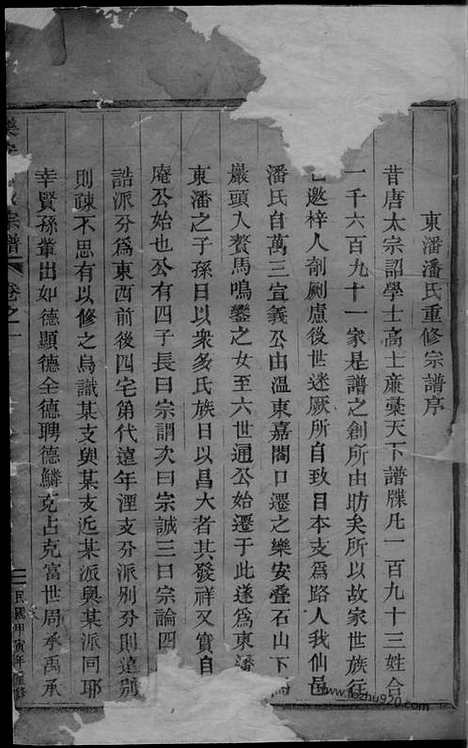 東潘潘氏重修宗譜序
昔唐太宗詔學士高士廉藁天下譜牒凡一百九十三姓合
一千六百九十一家是譜之創所由昉矣所以故家世族往
邀梓人剞劂慮後世迷厥所自致日本支爲路人我仙邑
潘氏自萬三宣義公由溫東嘉閣口遷之樂安叠石山下
巖頭人贅馬鳴鑾之女至六世通公始遷于此遂爲東潘
東潘之子孫日以衆多氏族日以昌大者其發祥又實自
庵公始也公有四子長曰宗謂次曰宗誠三曰宗論四
誥派分爲東西前後四宅第代遠年湮支分派別分則遠
則疎不思有以修之烏識某支與某支近某派與某派同耶
幸賢孫輩出如德顯德全德聘德鱗克占克富世周承禹承
宗譜 卷之一
民國甲寅年重修
www.jiazhu920.com